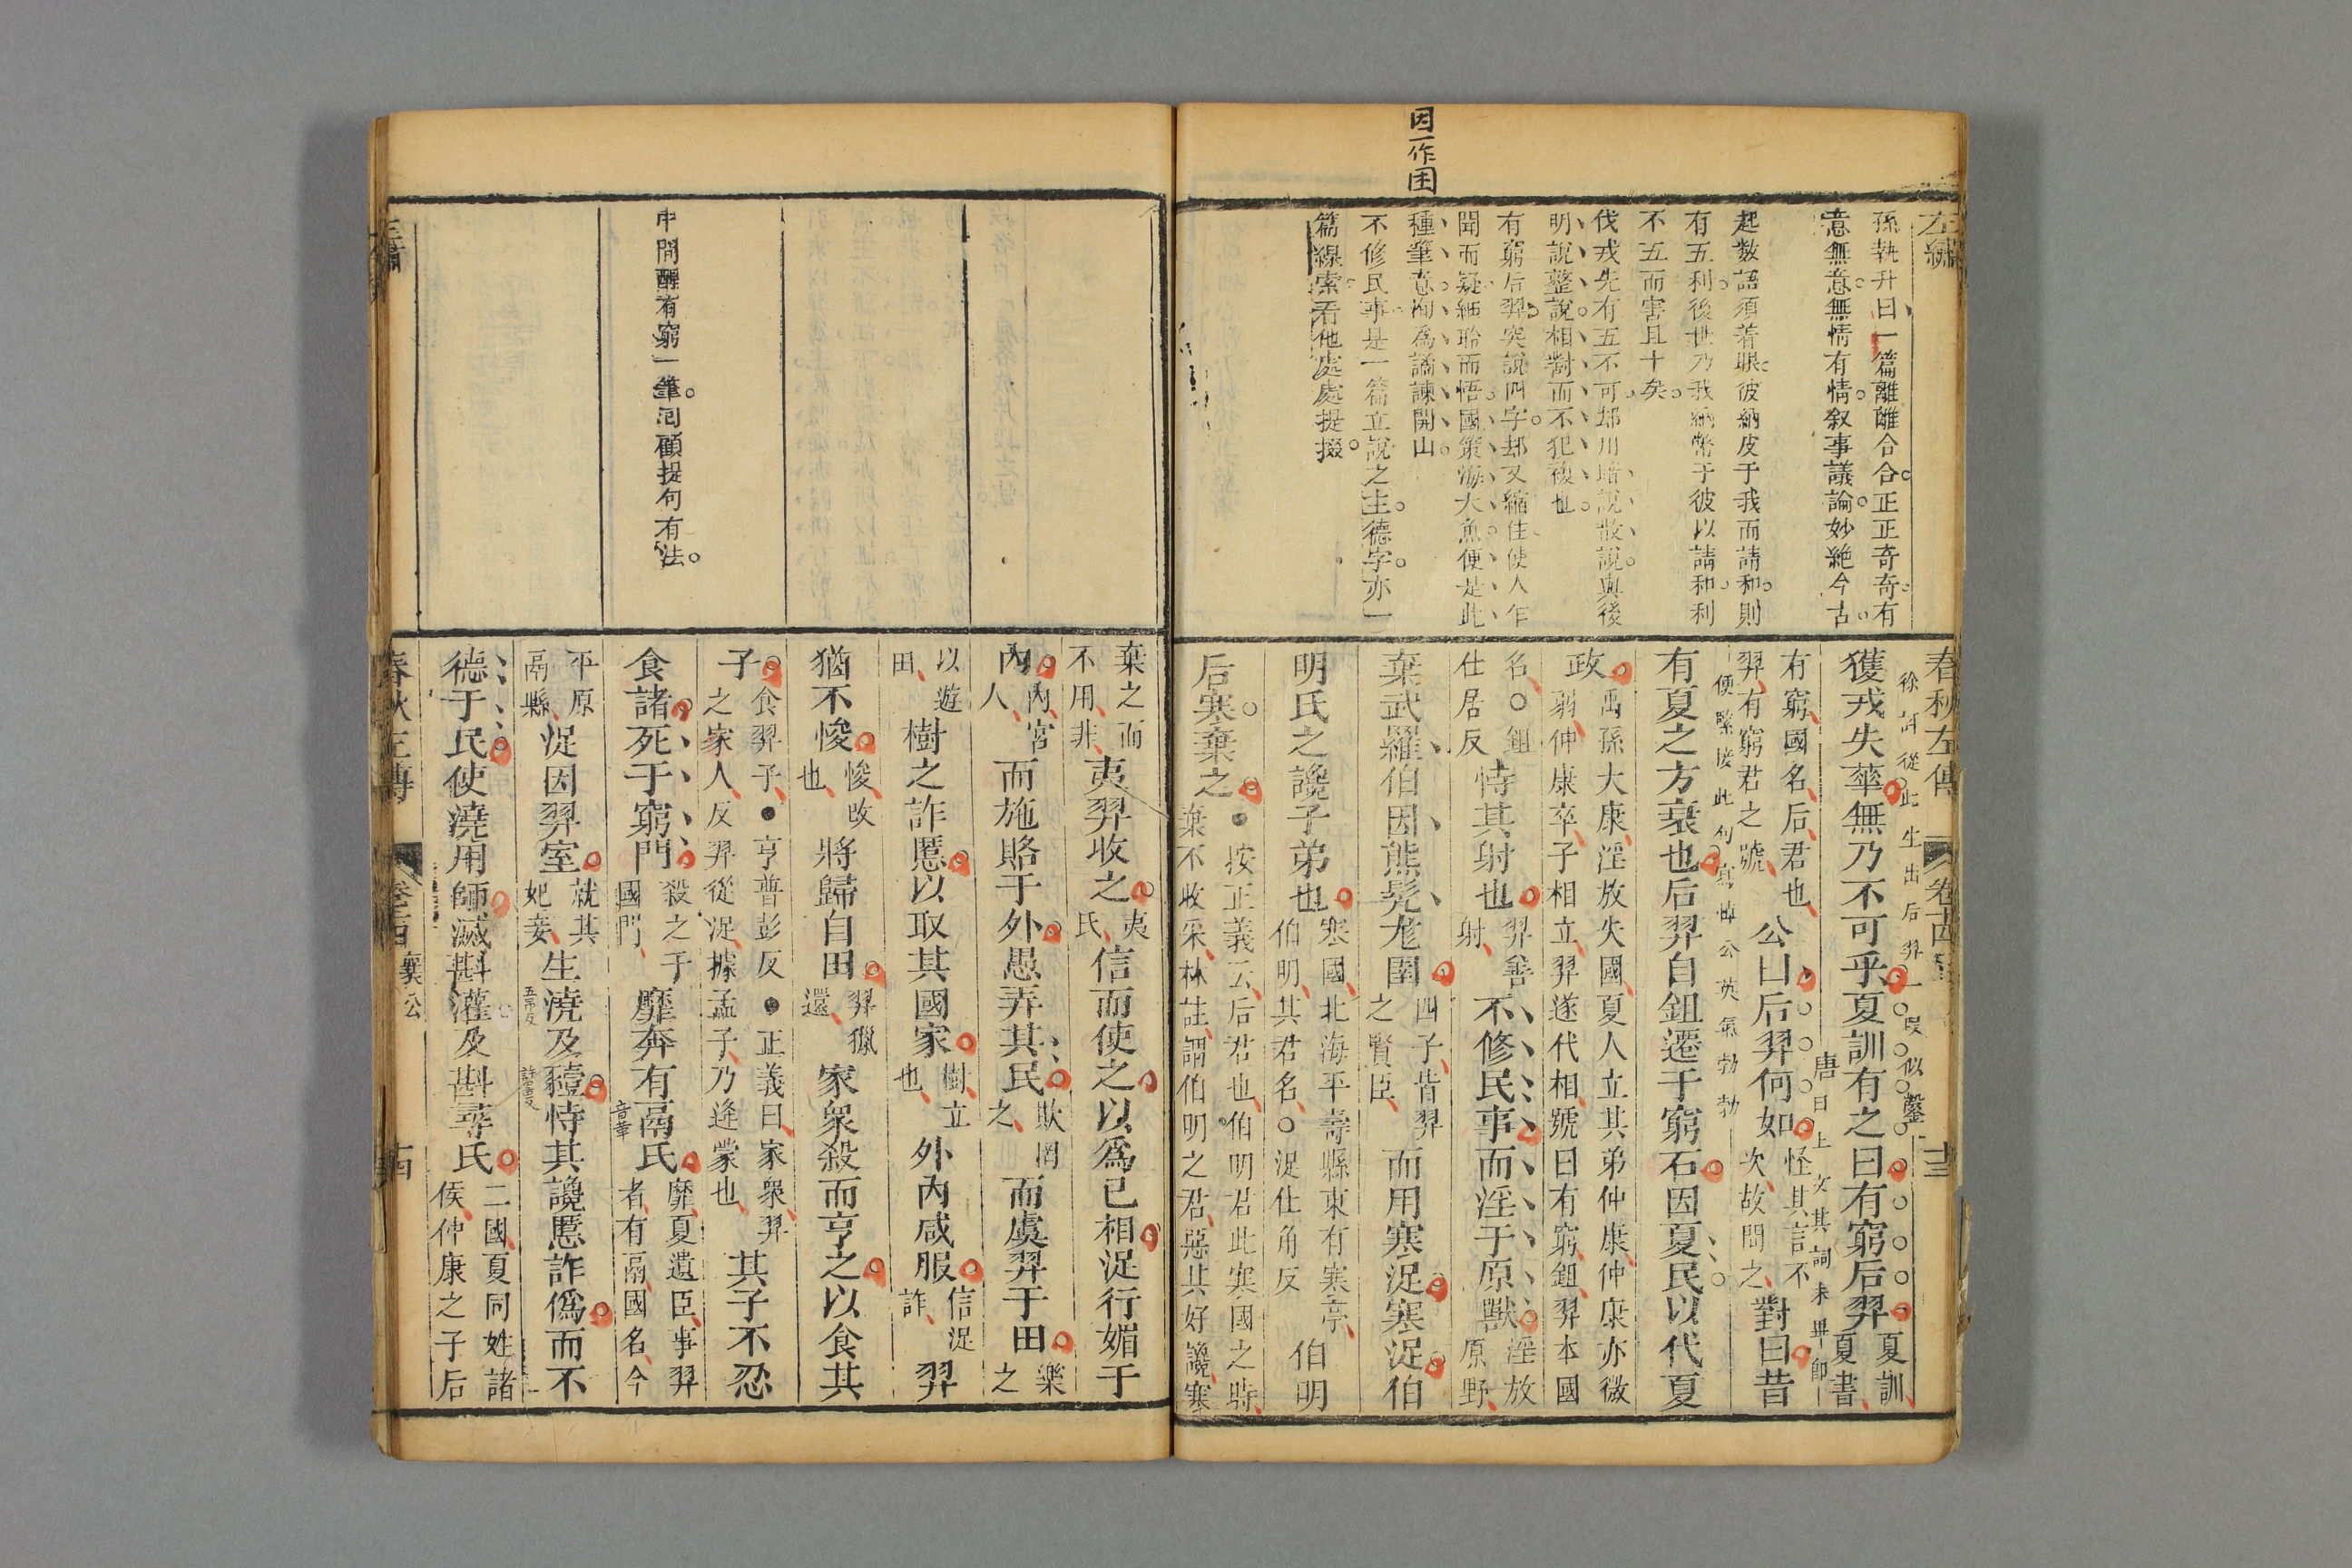 因一作困
左繡
孫執升曰一篇離離合合正正奇奇有
意無意無情有情叙事議論妙絶今古
起数語須着眼彼納皮于我而請和則
有五利後世乃我納幣于彼以請和利
不五而害且十矣
伐戎先有五不可却用暗說散說與後
明說整說相對而不犯複也
有窮后羿突說四字却又縮住使人乍
聞而疑細聆而悟國策海大魚便是此
種筆意洵爲譎諫開山
不修民事是一篇立說之主德字亦一
篇線索看他處處提掇
春秋左傳 卷十四 十三
徐訏從此生出后羿一段似鑿
獲戎失華無乃不可乎夏訓有之曰有窮后羿夏訓夏書
唐曰上文其詞未畢卽
有窮國名后君也羿有窮君之號公曰后羿何如怪其言不次故問之對曰昔
便緊接此句寫悼公英氣勃勃
有夏之方衰也后羿自鉏遷于窮石因夏民以代夏
政禹孫大康淫放失國夏人立其弟仲康仲康亦微弱仲康卒子相立羿遂代相號曰有窮鉏羿本國
名○鉏仕居反恃其射也羿善射不修民事而淫于原獸淫放原野
棄武羅伯因熊髡尨圉四子皆羿之賢臣而用寒浞寒浞伯
明氏之讒子弟也寒國北海平壽縣東有寒亭伯明其君名○浞仕角反伯明
后寒棄之●按正義云后君也伯明君此寒國之時棄不收采林註謂伯明之君惡其好讒寒
棄之而不用非夷羿收之夷氏信而使之以爲已相浞行媚于
內內宮人而施賂于外愚弄其民欺罔之而虞羿于田樂之
以遊田樹之詐慝以取其國家樹立也外內咸服信浞詐羿
猶不悛悛改也將歸自田羿獵還家衆殺而亨之以食其
子食羿子●亨普彭反●正義曰家衆羿之家人反羿從浞據孟子乃逄蒙也其子不忍
中間醒有窮一筆囘顧提句有法
食諸死于窮門殺之于國門靡奔有鬲氏音革靡夏遺臣事羿者有鬲國名今
平原鬲縣浞因羿室就其妃妾生澆五弔反及豷許器反恃其讒慝詐僞而不
德于民使澆用師滅斟灌及斟尋氏二國夏同姓諸侯仲康之子后
春秋左傳 卷十四 襄公 十四